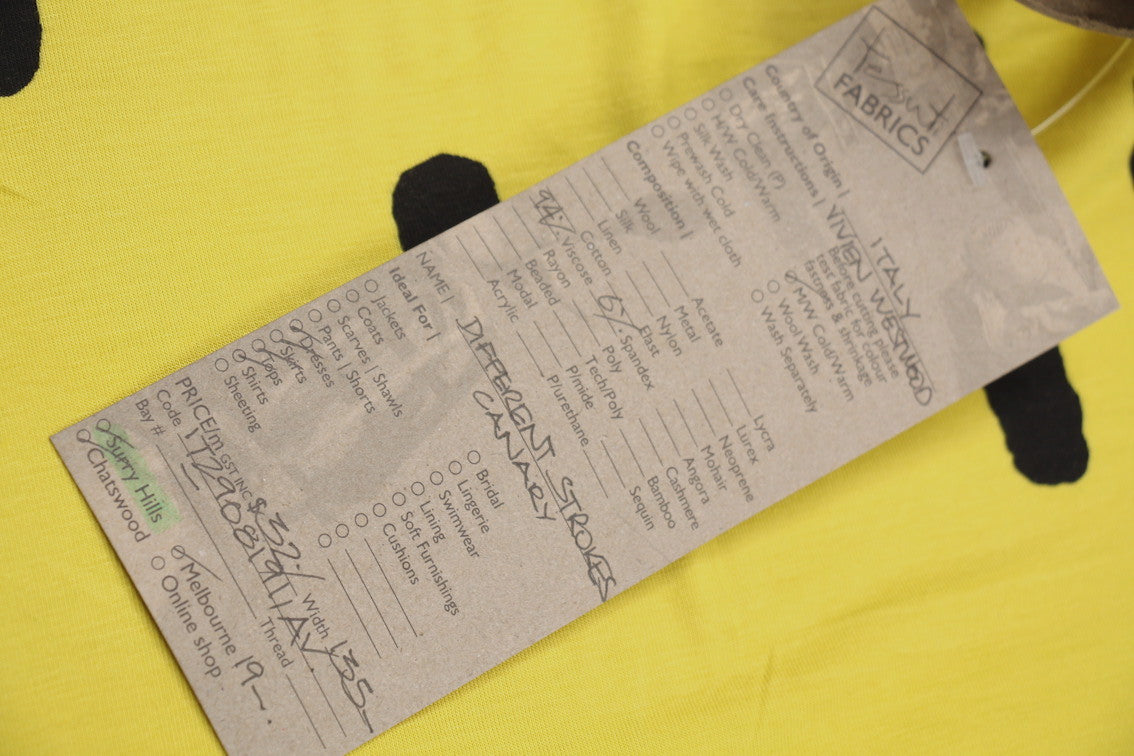 Tessuti
FABRICS
Country of Origin | ITALY
Care Instructions | VIVIEN WESTWOOD
Dry Clean (P)
H/W Cold/Warm
Silk Wash
Prewash Cold
Wipe with wet cloth
Before cutting please
test fabric for colour
fastness & shrinkage
M/W Cold/Warm
Wool Wash
Wash Separately
Composition |
Wool
Silk
Linen
Cotton
94% Viscose
Rayon
Beaded
Modal
Acrylic
Acetate
Metal
Nylon
Elast
6% Spandex
Poly
Tech/Poly
P/mide
P/urethane
Lycra
Lurex
Neoprene
Mohair
Angora
Cashmere
Bamboo
Sequin
NAME | DIFFERENT STROKES
CANARY
Ideal For |
Jackets
Coats
Scarves | Shawls
Pants | Shorts
Dresses
Skirts
Tops
Shirts
Sheeting
Bridal
Lingerie
Swimwear
Lining
Soft Furnishings
Cushions
PRICE/m GST INC $32 Width 135
Code
Bay # Thread
Surry Hills
Chatswood
Melbourne 19
Online shop